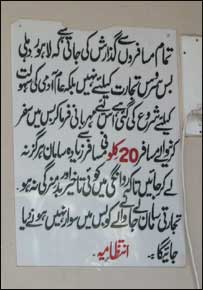 تمام مسافروں سے گذارش کی جاتی ہے کہ لاہور دہلی
بس سروس تجارت کیلئے نہیں بلکہ عام آدمی کی سہولت
کیلئے شروع کی گئی اس لئے مہربانی فرما کر بس میں سفر
کرنیوالے مسافر 20 کلو فی مسافر سے زیادہ سامان ہرگز نہ
لے کر جائیں تاکہ روانگی میں کوئی تاخیر اور بدمزگی نہ ہو۔
تجارتی سامان لے جانے والے کو بس میں سوار نہیں ہونے دیا
جائیگا۔ انتظامیہ۔